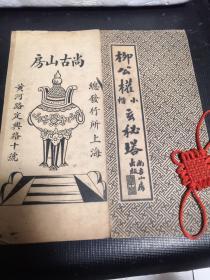 尚古山房
總發行所上海
黃河路定興路十號
柳公權
小楷
玄秘塔
尚古山房出版